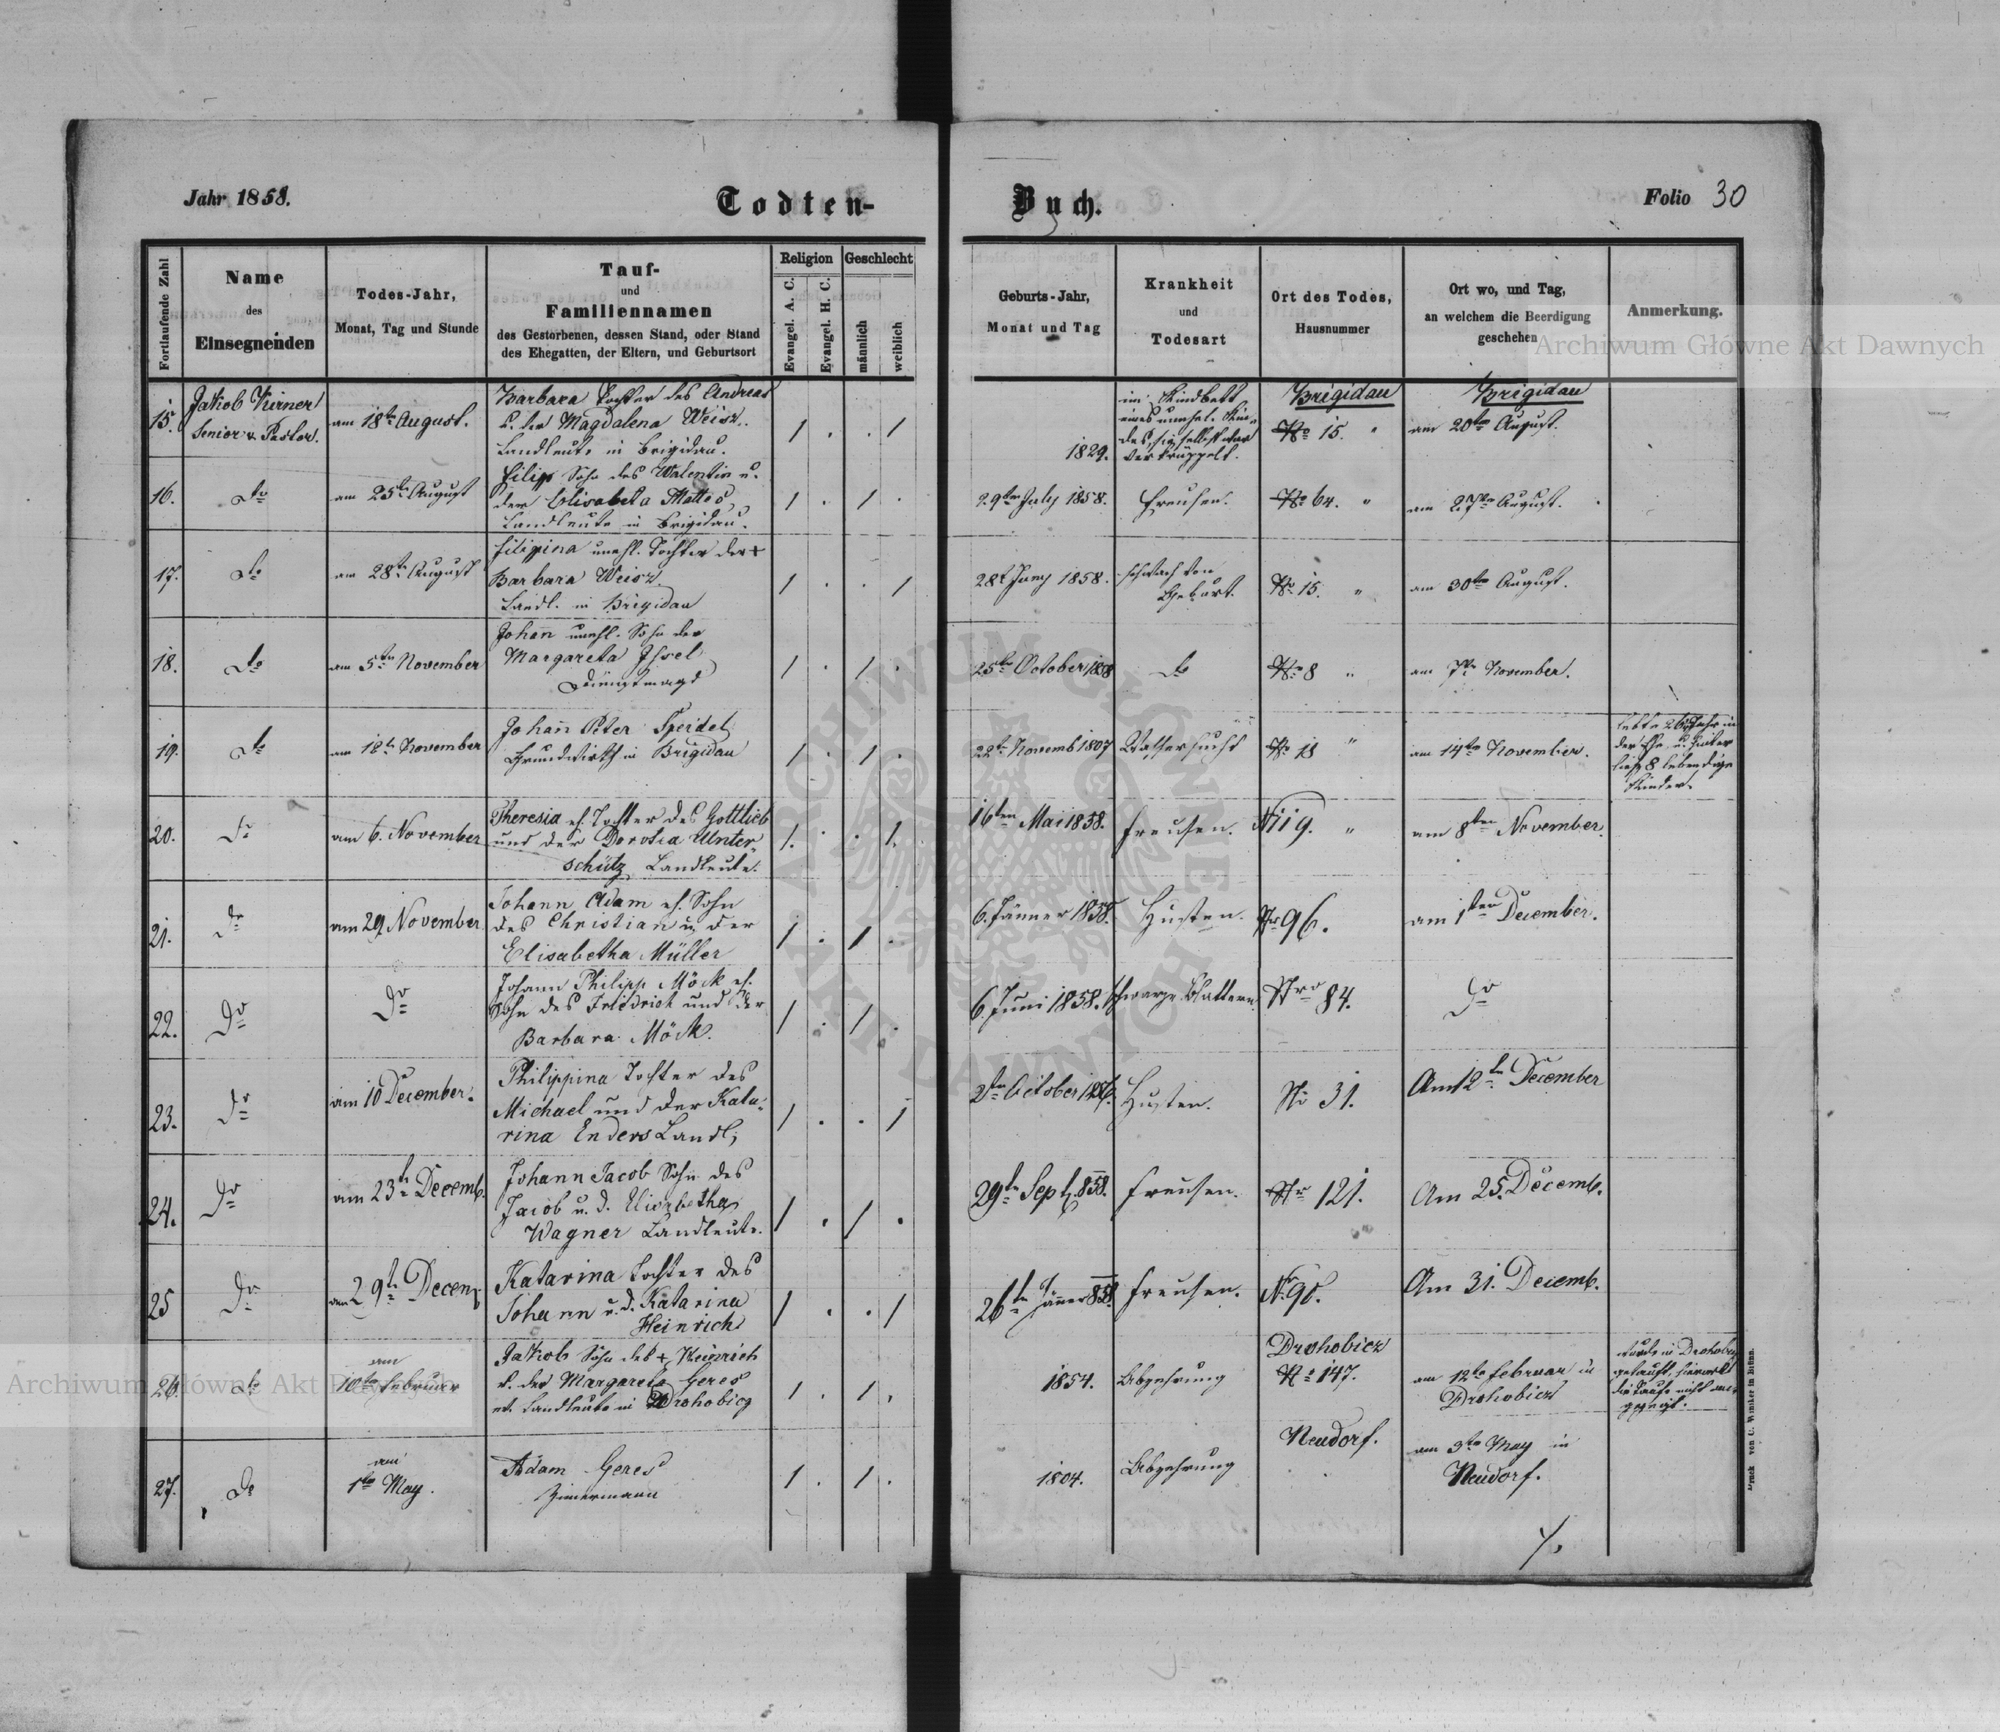 Jahr 1858.
Todten-
Buch.
Folio 30
Fortlaufende Zahl
Name
des
Einsegnenden
Todes-Jahr,
Monat, Tag und Stunde
Tauf-
und
Familiennamen
des Gestorbenen, dessen Stand, oder Stand
des Ehegatten, der Eltern, und Geburtsort
Religion
Evangel. A. C.
Evangel. H. C.
Geschlecht
männlich
weiblich
Geburts-Jahr,
Monat und Tag
Krankheit
und
Todesart
Ort des Todes,
Hausnummer
Ort wo, und Tag,
an welchem die Beerdigung
geschehen
Anmerkung.
15.
Jakob Kirner
Senior u. Pastor.
am 18te August.
Barbara Tochter des Andreas
u. der Magdalena Weisz.
Landleute in Brigidau.
1 . . 1
1829.
im Kindbett
eines unehel. Kin-
des, sie selbst war
verkrüppelt.
Brigidau
No 15. "
Brigidau
am 20ten August.
16.
do
am 25te August
Filipp Sohn des Walentin u.
der Elisabeta Mattes
Landleute in Brigidau.
1 . 1 .
29ten July 1858.
Freusen.
No 64. "
am 27te August.
17.
do
am 28te August
Filippina unehl. Tochter der +
Barbara Weisz
Landl. in Brigidau
1 . . 1
28t Juny 1858.
schwach von
Geburt.
No 15. "
am 30ten August.
18.
do
am 5te November
Johann unehl. Sohn der
Margareta Issel
Dienstmagd
1 . 1 .
25te October 1858
do
No 8 "
am 7te November.
19.
do
am 12te November
Johann Peter Speidel
Grundwirth in Brigidau
1 . 1 .
22te Novemb 1807
Wassersucht
No 18 "
am 14te November.
lebte 26 Jahr in
der Ehe u. hinter
ließ 8 lebendige
Kinder.
20.
do
am 6. November
Theresia eh. Tochter des Gottlieb
und der Dorotea Unter-
schütz Landleute.
1. . . 1.
16ten Mai 1858.
Freusen.
N 119. "
am 8ten November.
21.
do
am 29. November
Johann Adam eh. Sohn
des Christian u. der
Elisabetha Müller
1 . 1 .
6. Jänner 1858.
Husten.
Nr 96.
am 1ten December.
22.
do
do
Johann Philipp Möck eh.
Sohn des Friedrich und der
Barbara Möck.
1 . 1 .
6. Juni 1858.
schwarze Blattern.
Nro 84.
do
23.
do
am 10 December.
Philippina Tochter des
Michael und der Kata-
rina Enders Landl;
1 . . 1
2te October
Husten.
No 31.
Am 12te December
24.
do
am 23te Decemb.
Johann Jacob Sohn des
Jacob u. d. Elisabetha
Wagner Landleute.
1 . 1 .
29te Sept 858.
Freusen.
Nr 121.
Am 25. Decemb.
25
do
am 29te Decem
Katarina Tochter des
Johann u. d. Katarina
Heinrich
1 . . 1
26te Jänner 858.
Freusen.
Nr 90.
Am 31. Decemb.
26.
do
am
10te Februar
Jakob Sohn des + Heinrich
u. der Margareta Geres
Landleute in Drohobicz
1 . 1 .
1854.
Abzehrung
Drohobicz
No 147.
am 12te Februar in
Drohobicz
wurde in Drohobicz
getauft, hierorts
die Taufe nicht an-
gezeigt.
27.
do
am
1te May.
Adam Geres
Zimermann
1 . 1 .
1804.
Abzehrung
Neudorf.
am 3te May in
Neudorf.
Druck von C. Winiker in Brünn.
Archiwum Główne Akt Dawnych
Archiwum Główne Akt Dawnych
ARCHIWUM GŁÓWNE AKT DAWNYCH